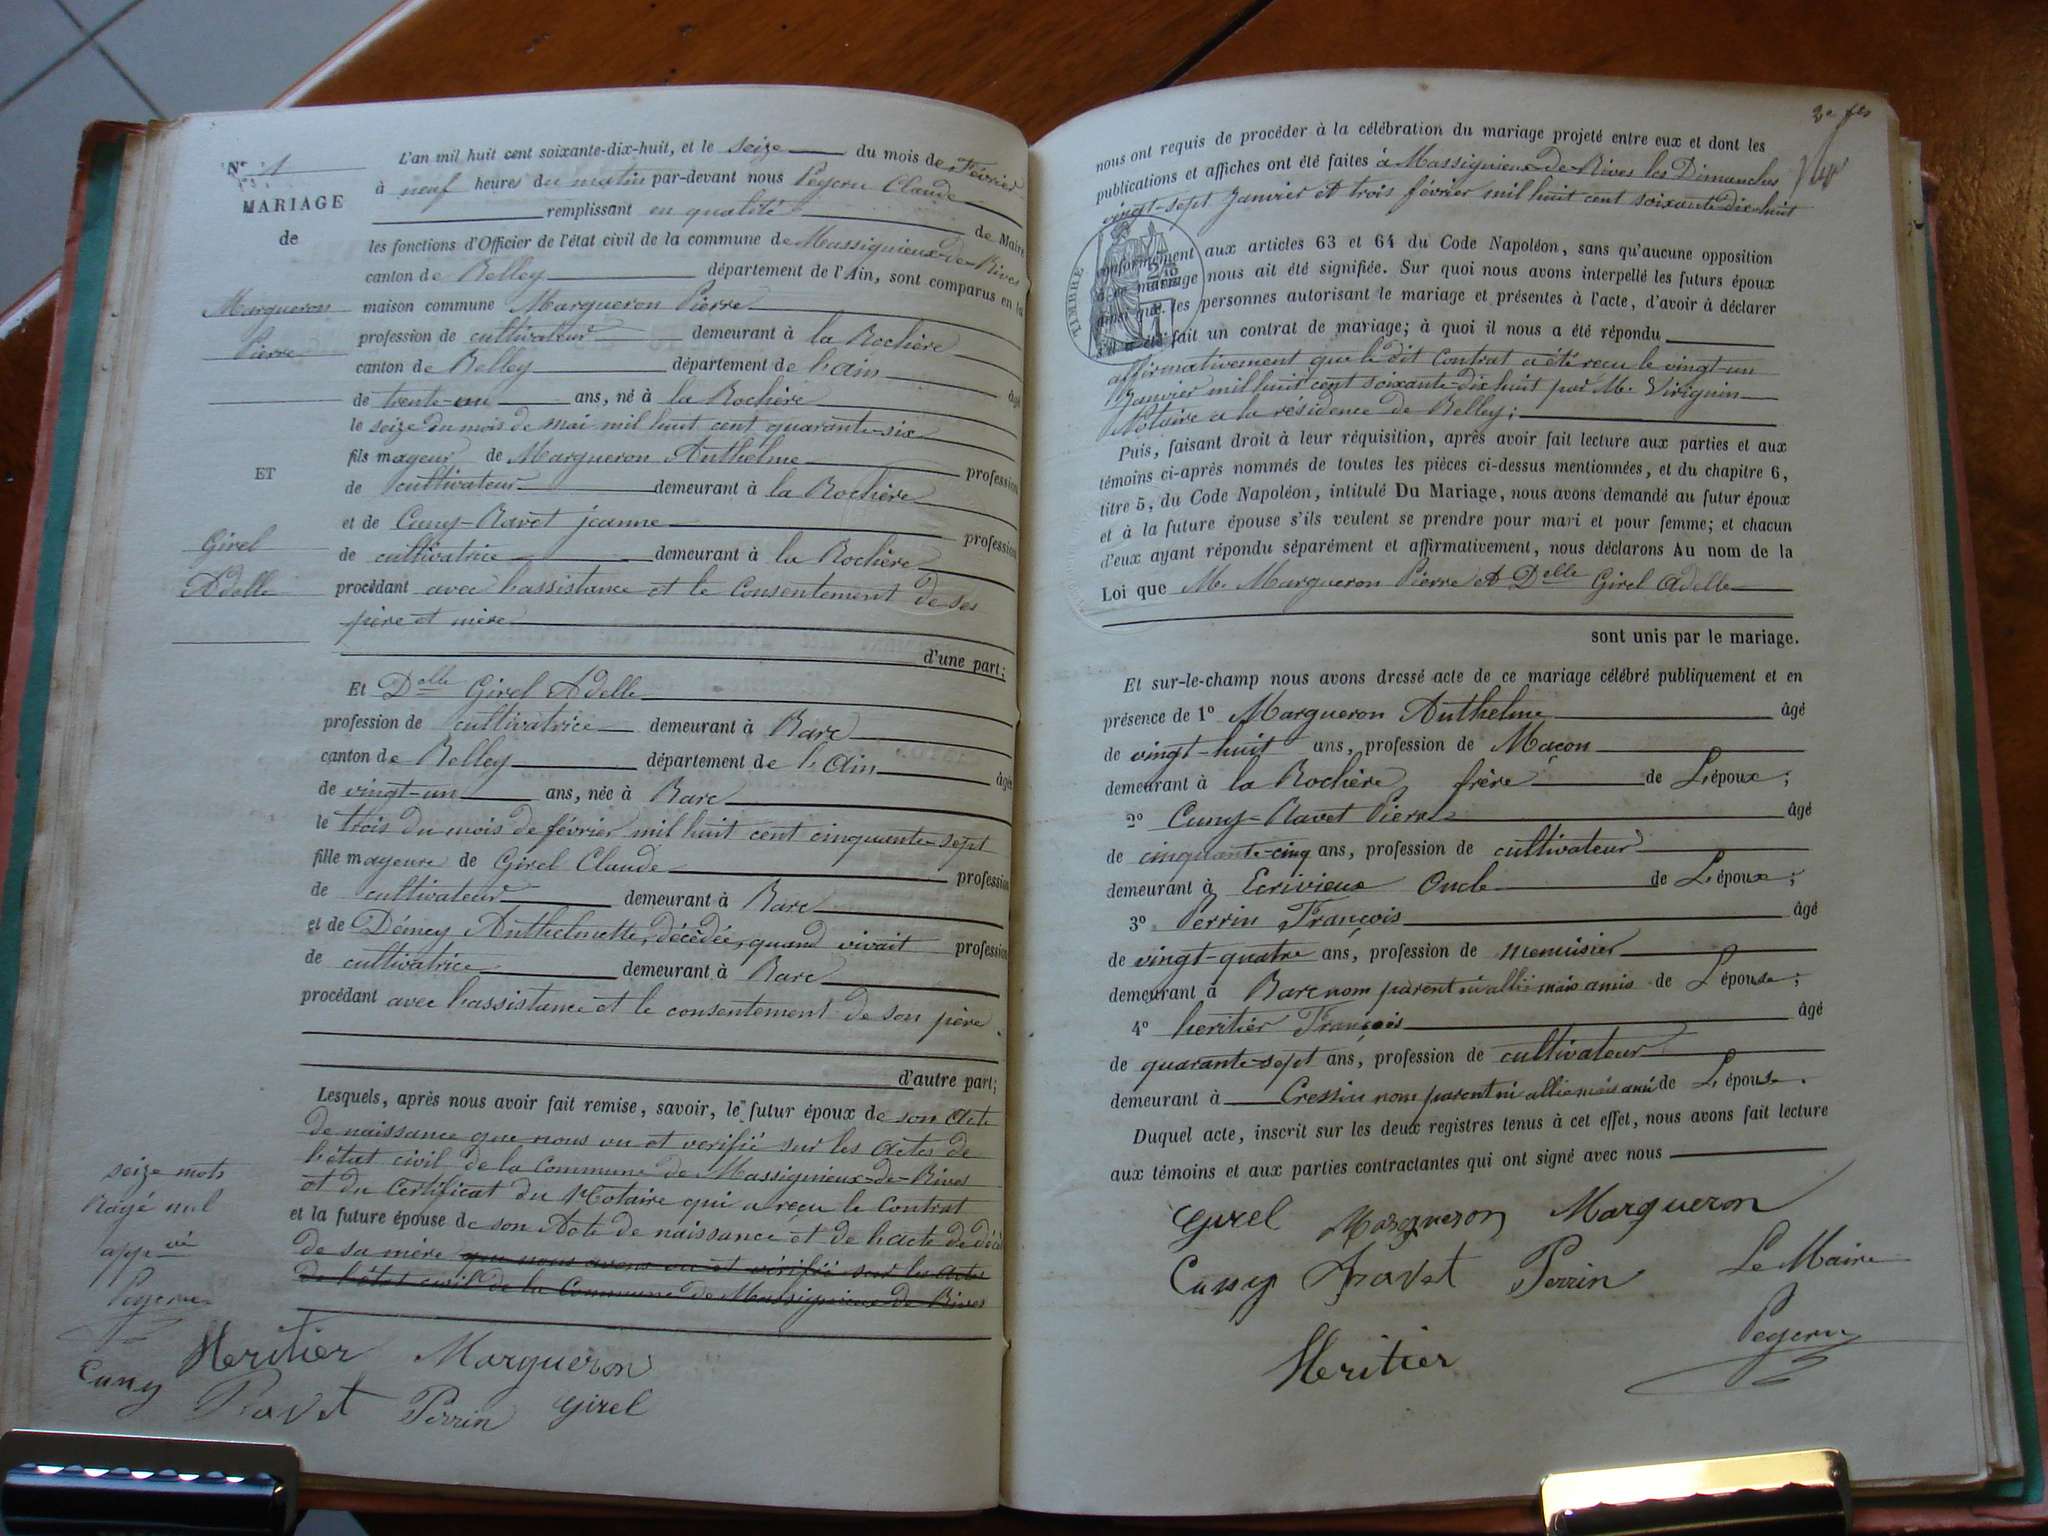 N° 1
MARIAGE
de
Margueron
Pierre
ET
Girel
Adelle
L'an mil huit cent soixante-dix-huit, et le seize du mois de Février
à neuf heures du matin par-devant nous Peycru Claude
remplissant en qualité de Maire
les fonctions d'Officier de l'état civil de la commune de Massignieux-de-Rives
canton de Belley département de l'Ain, sont comparus en la
maison commune Margueron Pierre
profession de cultivateur demeurant à la Rochère
canton de Belley département de l'Ain âgé
de trente-un ans, né à la Rochère
le seize du mois de mai mil huit cent quarante-six
fils mageur de Margueron Anthelme profession
de cultivateur demeurant à la Rochère
et de Cuny-Ravet jeanne profession
de cultivatrice demeurant à la Rochère
procédant avec l'assistance et le consentement de ses
père et mère
d'une part;
Et Delle Girel Adelle
profession de cultivatrice demeurant à Rarc
canton de Belley département de l'Ain âgée
de vingt-un ans, née à Rarc
le trois du mois de février mil huit cent cinquante-sept
fille mageure de Girel Claude profession
de cultivateur demeurant à Rarc
et de Démey Anthelmette, décédée, quand vivait profession
de cultivatrice demeurant à Rarc
procédant avec l'assistance et le consentement de son père.
d'autre part;
Lesquels, après nous avoir fait remise, savoir, le futur époux de son Acte
de naissance que nous vu et verifié sur les actes de
l'état civil de la Commune de Massignieux-de-Rives
et du Certificat du Notaire qui a reçu le Contrat
et la future épouse de son Acte de naissance et de l'acte de décè
de sa mère que nous avons vu et vérifié sur les actes
de l'état civil de la Commune de Massignieux-de-Rives
seize mots
Rayé nul
appvé
Peycru
Heritier Margueron
Cuny Ravet Perrin Girel
nous ont requis de procéder à la célébration du mariage projeté entre eux et dont les
publications et affiches ont été faites à Massignieux-de-Rives les Dimanches
vingt-sept Janvier et trois février mil huit cent soixante-dix-huit
conformément aux articles 63 et 64 du Code Napoléon, sans qu'aucune opposition
à ce mariage nous ait été signifiée. Sur quoi nous avons interpellé les futurs époux
ainsi que les personnes autorisant le mariage et présentes à l'acte, d'avoir à déclarer
s'il a été fait un contrat de mariage; à quoi il nous a été répondu
TIMBRE
affirmativement que le dit Contrat a été reçu le vingt-un
Janvier mil huit cent soixante-dix huit par Me. Viriguin
Notaire a la résidence de Belley;
Puis, faisant droit à leur réquisition, après avoir fait lecture aux parties et aux
témoins ci-après nommés de toutes les pièces ci-dessus mentionnées, et du chapitre 6,
titre 5, du Code Napoléon, intitulé Du Mariage, nous avons demandé au futur époux
et à la future épouse s'ils veulent se prendre pour mari et pour femme; et chacun
d'eux ayant répondu séparément et affirmativement, nous déclarons Au nom de la
Loi que M. Margueron Pierre et Delle Girel Adelle
sont unis par le mariage.
Et sur-le-champ nous avons dressé acte de ce mariage célébré publiquement et en
présence de 1° Margueron Anthelme âgé
de vingt-huit ans, profession de Maçon
demeurant à la Rochère, frère de L'époux;
2° Cuny-Ravet Pierre âgé
de cinquante-cinq ans, profession de cultivateur
demeurant à Ecrivieux Oncle de L'époux;
3° Perrin François âgé
de vingt-quatre ans, profession de menuisier
demeurant à Rarc nom parent ni allié mais amis de L'épouse;
4° heritier François âgé
de quarante-sept ans, profession de cultivateur
demeurant à Cressin nom parent ni allié mais ami de L'épouse.
Duquel acte, inscrit sur les deux registres tenus à cet effet, nous avons fait lecture
aux témoins et aux parties contractantes qui ont signé avec nous
Girel Margueron Margueron
Cuny Ravet Perrin Le Maire
Heritier Peycru